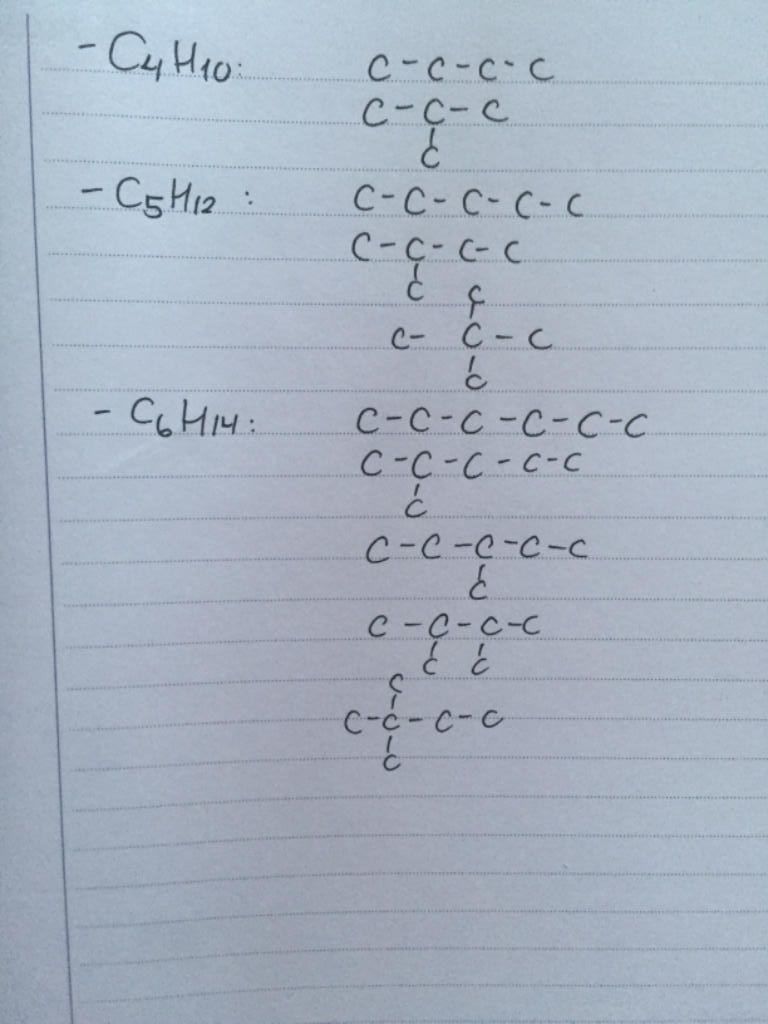 - C₄H₁₀: C-C-C-C
C-C-C
C
- C₅H₁₂: C-C-C-C-C
C-C-C-C
C C
C- C-C
C
- C₆H₁₄: C-C-C-C-C-C
C-C-C-C-C
C
C-C-C-C-C
C
C-C-C-C
C C
C
C-C-C-C
C